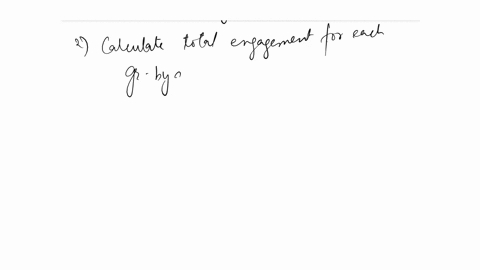 2) Calculate total engagement for each
gr. by